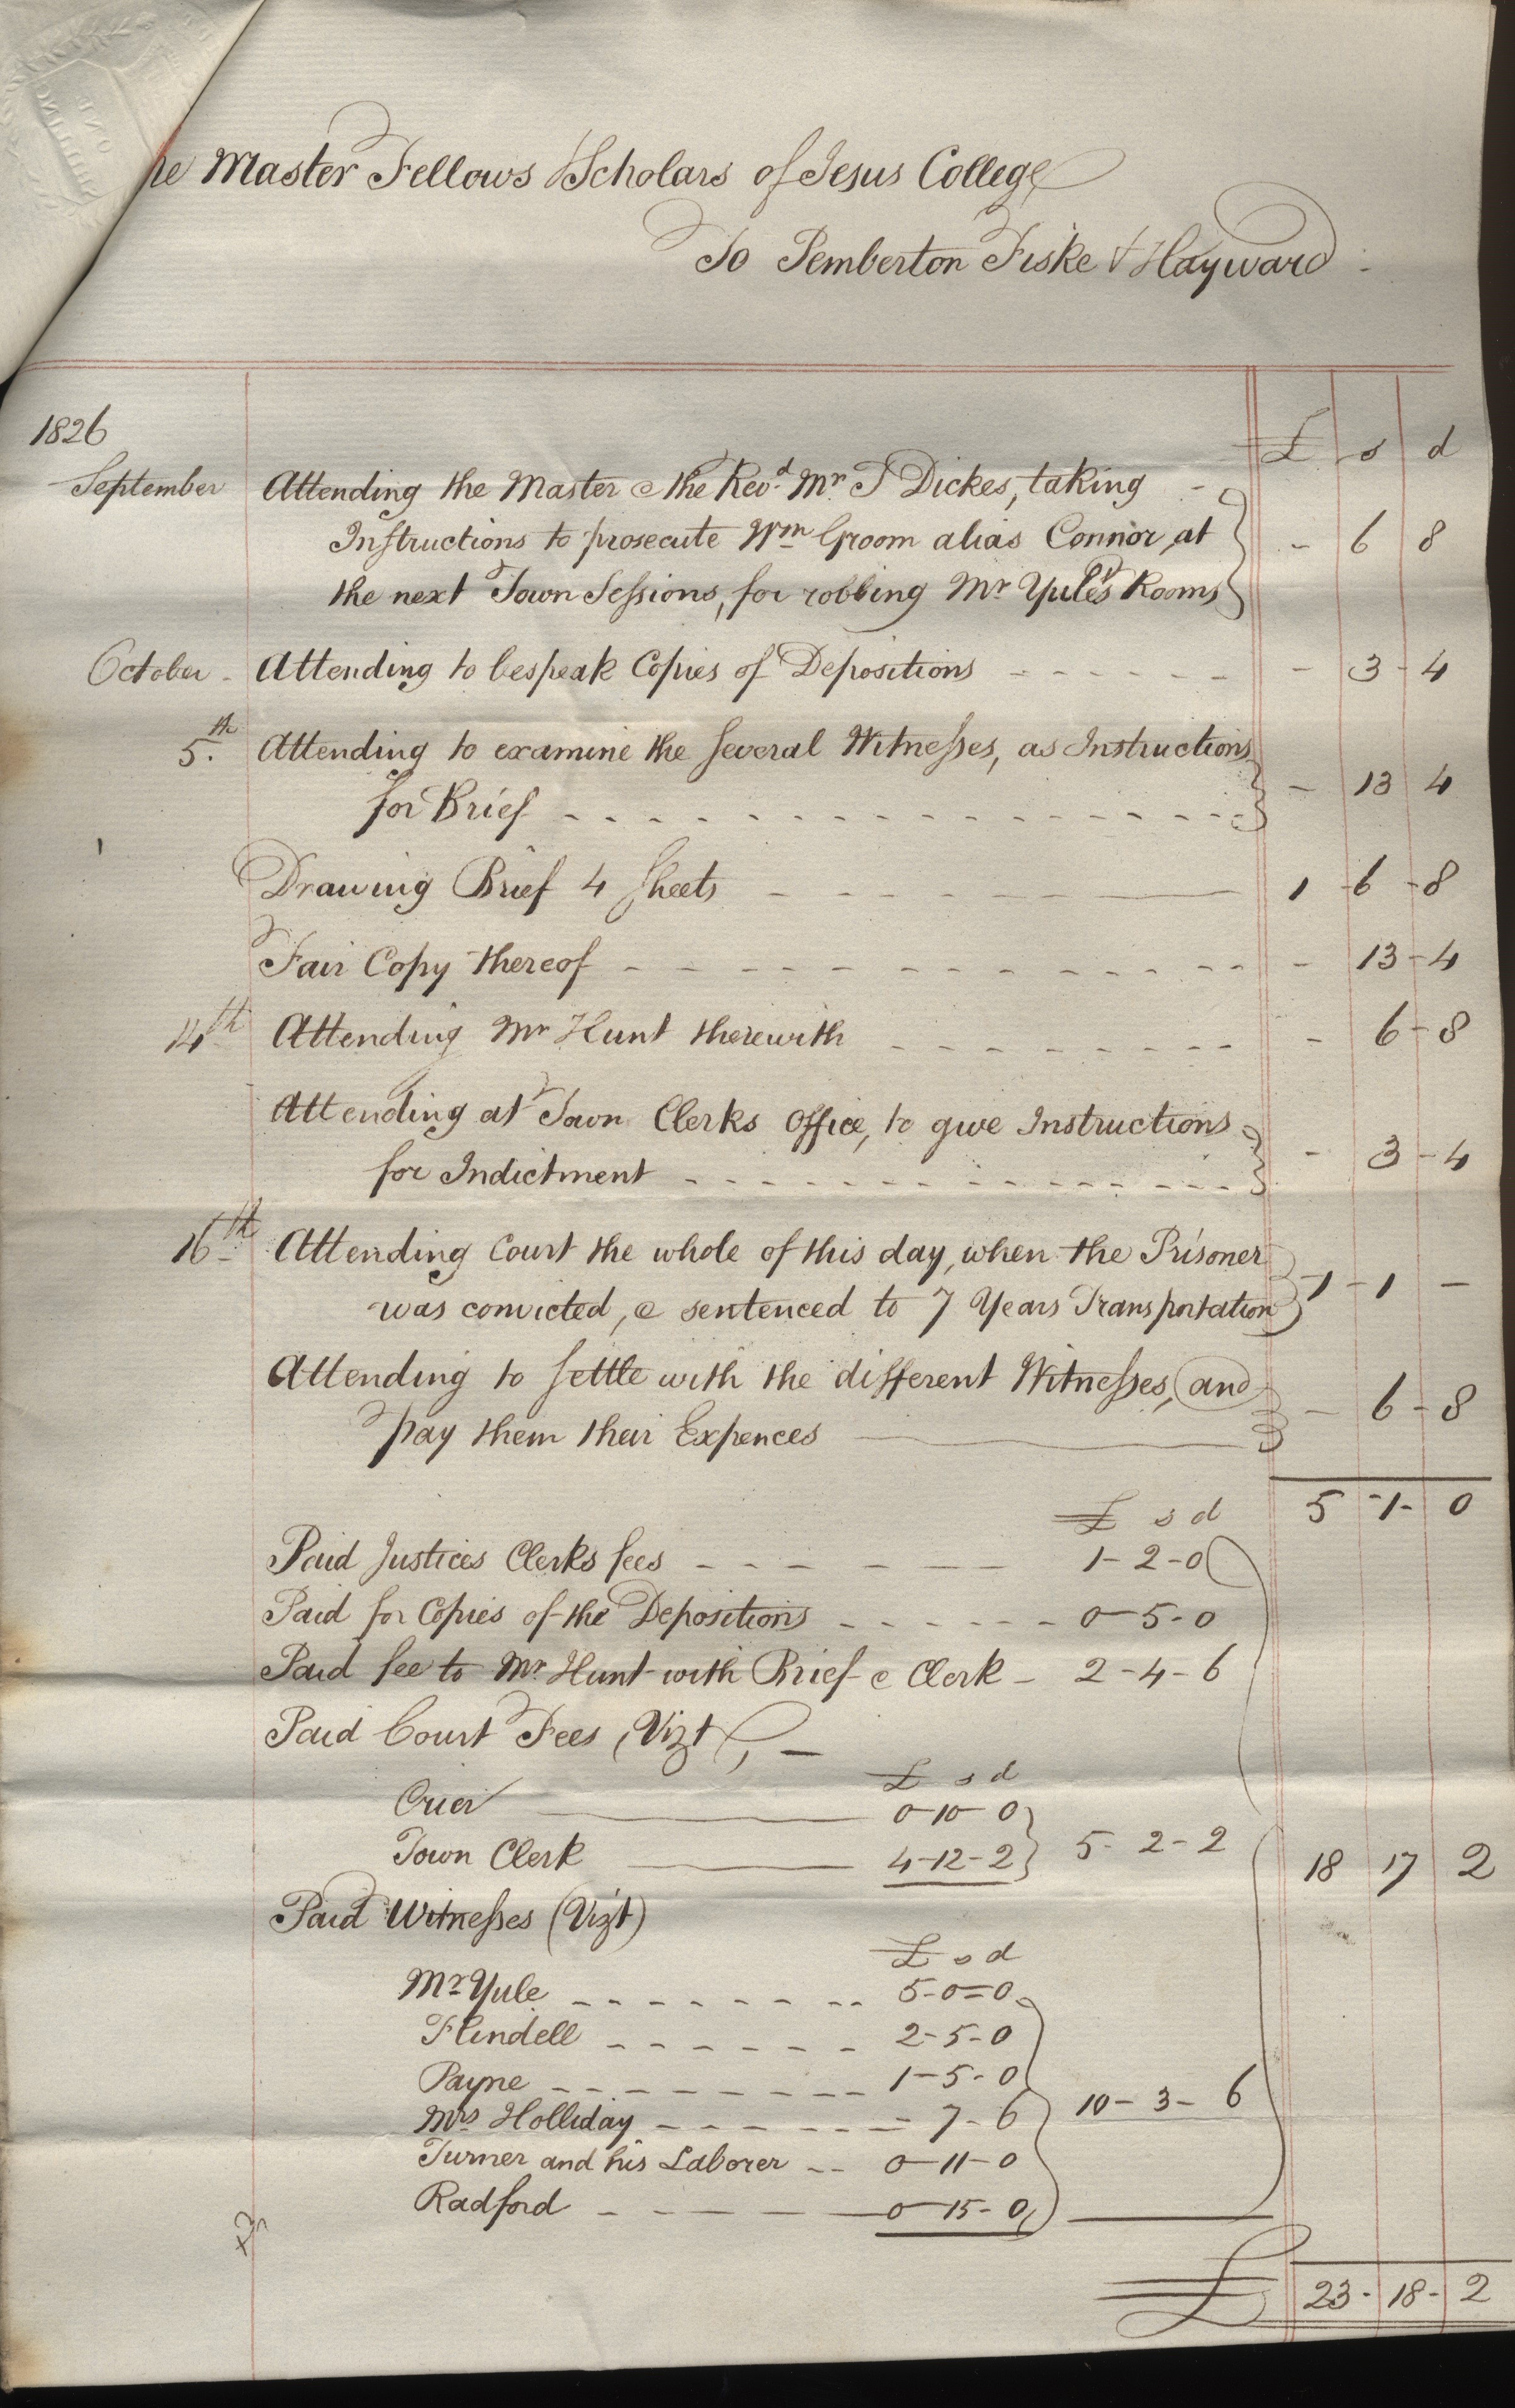 he Master Fellows & Scholars of Jesus College
To Pemberton Fiske & Hayward
1826
£ s d
September Attending the Master & the Revd. Mr. T Dickes, taking
Instructions to prosecute Wm Groom alias Connor, at - 6 8
the next Town Sessions, for robbing Mr Yule's Rooms
October - Attending to bespeak Copies of Depositions - - - - - - - 3 - 4
5th. Attending to examine the several Witnesses, as Instructions
for Brief - - - - - - - - - - - - - - - - 13 4
Drawing Brief 4 Sheets - - - - - - 1 - 6 - 8
Fair Copy thereof - - - - - - - - - - - - - - 13 - 4
14th Attending Mr Hunt therewith - - - - - - - - - - 6 - 8
Attending at Town Clerks Office, to give Instructions
for Indictment - - - - - - - - - - - - - - - 3 - 4
16th Attending Court the whole of this day, when the Prisoner
was convicted, & sentenced to 7 Years Transportation 1 - 1 -
Attending to settle with the different Witnesses, and
pay them their Expences - 6 - 8
5 - 1 - 0
£ s d
Paid Justices Clerks fees - - - - - - 1 - 2 - 0
Paid for Copies of the Depositions - - - - - - 0 - 5 - 0
Paid fee to Mr Hunt with Brief & Clerk - 2 - 4 - 6
Paid Court Fees, (Vizt), -
£ s d
Crier 0 - 10 - 0
Town Clerk 4 - 12 - 2 5 - 2 - 2 18 17 2
Paid Witnesses (Vizt)
£ s d
Mr Yule - - - - - - - - 5 - 0 = 0
Flindell - - - - - - 2 - 5 - 0
Payne - - - - - - - - - 1 - 5 - 0
Mrs Holliday - - - - - - - 7 - 6 10 - 3 - 6
Turner and his Laborer - - 0 - 11 - 0
Radford - - - - 0 - 15 - 0
£ 23 - 18 - 2